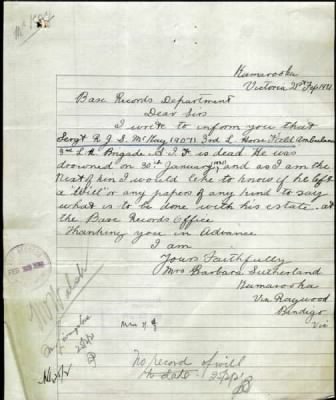 Mc Kay
Kamarooka
Victoria 21st Feb 1921
Base Records Department
Dear Sirs
I write to inform you that
Sergt R J S. McKay 19071 3rd L. Horse Field Ambulance
3rd L.H. Brigade A.I.F is dead. He was
drowned on 30th January, and as I am the
Next of kin I would like to know if he left
a "Will" or any papers of any kind to say
what is to be done with his estate, at
the Base Records Office
Thanking you in Advance
I am
Yours Faithfully
Mrs Barbara Sutherland
Kamarooka
Via Raywood
Bendigo
Vic
No record of will
to date